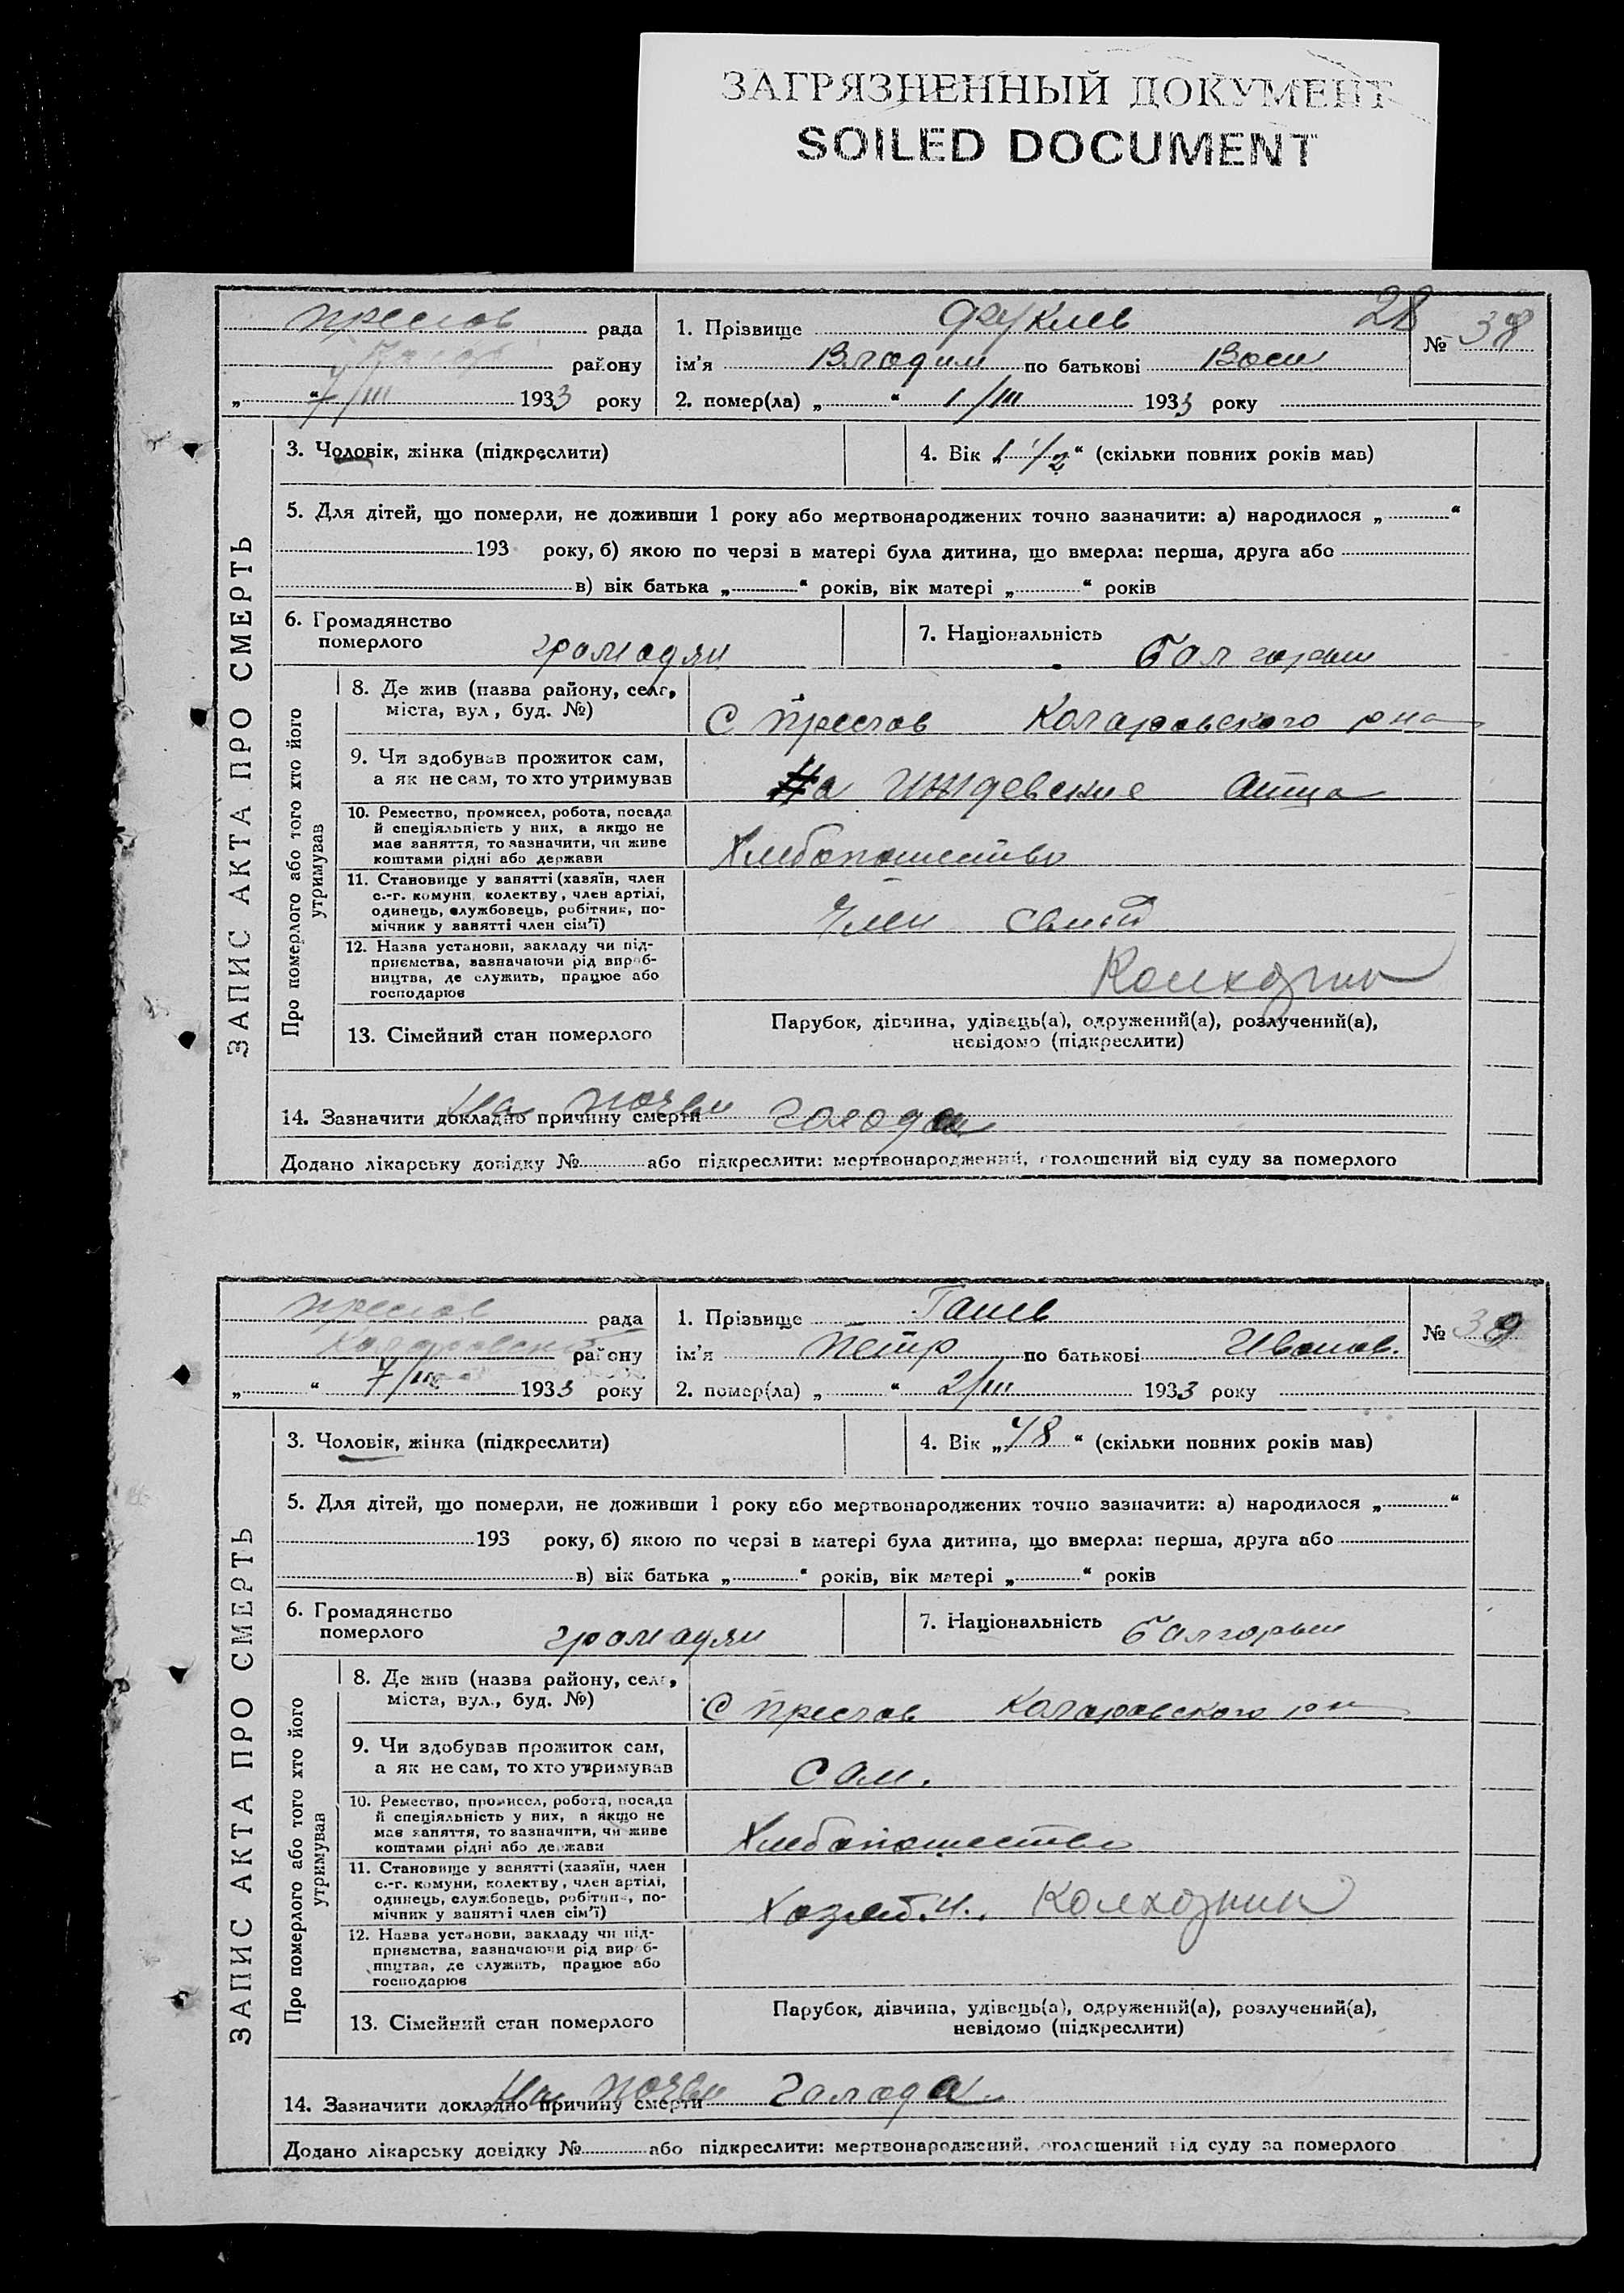 ЗАГРЯЗНЕННЫЙ ДОКУМЕНТ
SOILED DOCUMENT
28
Преслов рада
району
„ “ 7/III 1933 року
1. Прізвище Фуклев
ім'я Владим по батькові Васи
2. помер(ла) „ “ 1/III 1933 року
№ 38
ЗАПИС АКТА ПРО СМЕРТЬ
3. Чоловік, жінка (підкреслити)
4. Вік „1 1/2“ (скільки повних років мав)
5. Для дітей, що померли, не доживши 1 року або мертвонароджених точно зазначити: а) народилося „ “
193 року, б) якою по черзі в матері була дитина, що вмерла: перша, друга або
в) вік батька „ “ років, вік матері „ “ років
6. Громадянство
померлого громадян
7. Національність Болгарин
Про померлого або того хто його
утримував
8. Де жив (назва району, села,
міста, вул., буд. №)
С Преслав Коларовского рна
9. Чи здобував прожиток сам,
а як не сам, то хто утримував
На иждевение атца
10. Ремество, промисел, робота, посада
й спеціяльність у них, а якщо не
має заняття, то зазначити, чи живе
коштами рідні або держави
Хлебопашество
11. Становище у занятті (хазяїн, член
с.-г. комуни, колективу, член артілі,
одинець, службовець, робітник, по-
мічник у занятті член сім'ї)
Член
12. Назва установи, закладу чи під-
приємства, зазначаючи рід вироб-
ництва, де служить, працює або
господарює
Колхозник
13. Сімейний стан померлого
Парубок, дівчина, удівець(а), одружений(а), розлучений(а),
невідомо (підкреслити)
14. Зазначити докладно причину смерти На почви голода
Додано лікарську довідку № або підкреслити: мертвонароджений, оголошений від суду за померлого
Преслов рада
Коларовский району
„ “ 7/III 1933 року
1. Прізвище Ганев
ім'я Петр по батькові Иванов.
2. помер(ла) „ “ 2/III 1933 року
№ 39
ЗАПИС АКТА ПРО СМЕРТЬ
3. Чоловік, жінка (підкреслити)
4. Вік „48“ (скільки повних років мав)
5. Для дітей, що померли, не доживши 1 року або мертвонароджених точно зазначити: а) народилося „ “
193 року, б) якою по черзі в матері була дитина, що вмерла: перша, друга або
в) вік батька „ “ років, вік матері „ “ років
6. Громадянство
померлого громадян
7. Національність Болгарин
Про померлого або того хто його
утримував
8. Де жив (назва району, села,
міста, вул., буд. №)
С Преслав Коларовского рн
9. Чи здобував прожиток сам,
а як не сам, то хто утримував
Сам.
10. Ремество, промисел, робота, посада
й спеціяльність у них, а якщо не
має заняття, то зазначити, чи живе
коштами рідні або держави
Хлебопашество
11. Становище у занятті (хазяїн, член
с.-г. комуни, колективу, член артілі,
одинець, службовець, робітник, по-
мічник у занятті член сім'ї)
Колхозник
12. Назва установи, закладу чи під-
приємства, зазначаючи рід вироб-
ництва, де служить, працює або
господарює
13. Сімейний стан померлого
Парубок, дівчина, удівець(а), одружений(а), розлучений(а),
невідомо (підкреслити)
14. Зазначити докладно причину смерти На почви голода
Додано лікарську довідку № або підкреслити: мертвонароджений, оголошений від суду за померлого